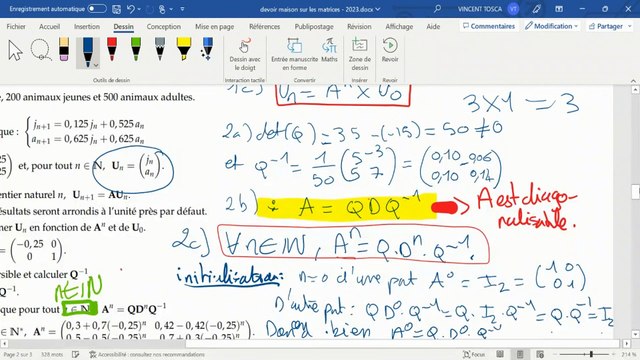 Enregistrement automatique
devoir maison sur les matrices - 2023.docx
VINCENT TOSCA
VT
Insertion
Dessin
Conception
Mise en page
Références
Publipostage
Révision
Affichage
Aide
Outils de dessin
Dessiner avec le doigt
Interaction tactile
Entrée manuscrite en forme
Convertir
Entrée manuscrite en Maths
Zone de dessin
Insérer
, 200 animaux jeunes et 500 animaux adultes.
que : { jₙ₊₁ = 0,125 jₙ + 0,525 aₙ
aₙ₊₁ = 0,625 jₙ + 0,625 aₙ
25) et, pour tout n ∈ ℕ, Uₙ = (jₙ aₙ).
entier naturel n, Uₙ₊₁ = AUₙ.
ésultats seront arrondis à l'unité près par défaut.
ner Uₙ en fonction de Aⁿ et de U₀.
= (−0,25 0
0 1)
ersible et calculer Q⁻¹
n∈ℕ
que pour tout n ∈ ℕ, Aⁿ = QDⁿQ⁻¹
∈ ℕ*, Aⁿ = (0,3 + 0,7(−0,25)ⁿ 0,42 − 0,42(−0,25)ⁿ
1c) Uₙ = Aⁿ × U₀
3×1 = 3
2a) det(Q) = 35 − (−15) = 50 ≠ 0
et Q⁻¹ = 1/50 (5 −3
5 7) = (0,10 −0,06
0,10 0,14)
2b) A = QDQ⁻¹ → A est diagonalisable.
2c) ∀n∈ℕ, Aⁿ = Q.Dⁿ.Q⁻¹.
initialisation: n=0 d'une part A⁰ = I₂ = (1 0
0 1)
D'autre part: QD⁰.Q⁻¹ = Q.I₂.Q⁻¹ = Q.Q⁻¹ = I₂
bien A⁰ = Q.D⁰.Q⁻¹
Page 2 sur 3
528 mots
Accessibilité : consultez nos recommandations